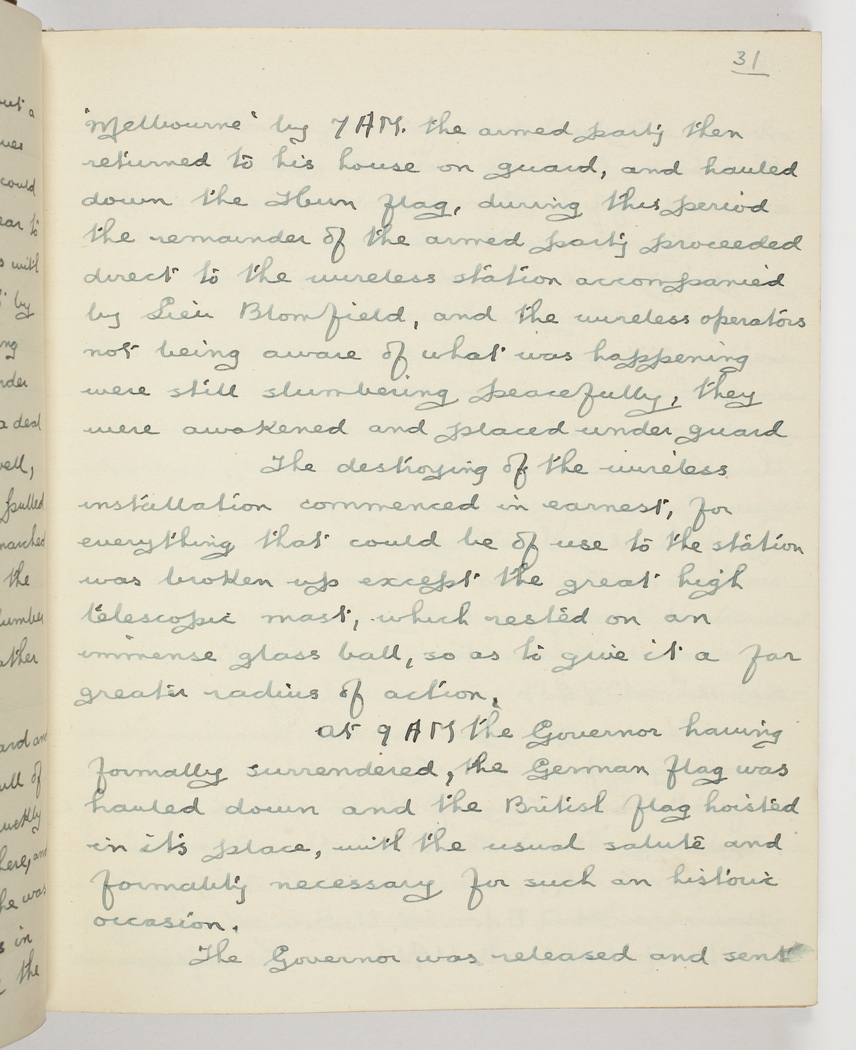 31
"Melbourne" by 7 AM. the armed party then
returned to his house on guard, and hauled
down the Hun flag, during this period
the remainder of the armed party proceeded
direct to the wireless station accompanied
by Lieu Blomfield, and the wireless operators
not being aware of what was happening
were still slumbering peacefully, they
were awakened and placed under guard
The destroying of the wireless
installation commenced in earnest, for
everything that could be of use to the station
was broken up except the great high
telescopic mast, which rested on an
immense glass ball, so as to give it a far
greater radius of action,
at 9 AM the Governor having
formally surrendered, the German flag was
hauled down and the British flag hoisted
in it's place, with the usual salute and
formality necessary for such an historic
occasion.
The Governor was released and sent